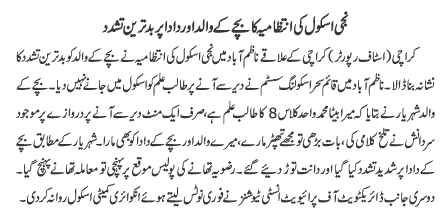 نجی اسکول کی انتظامیہ کا بچے کے والد اور دادا پر بدترین تشدد
کراچی (اسٹاف رپورٹر) کراچی کے علاقے ناظم آباد میں نجی اسکول کی انتظامیہ نے بچے کے والد کو بدترین تشدد کا
نشانہ بنا ڈالا۔ ناظم آباد میں قائم سحر اسکولنگ سسٹم نے دیر سے آنے پر طالب علم کو اسکول میں جانے نہیں دیا۔ بچے کے
والد شہریار نے بتایا کہ میرا بیٹا محمد واحد کلاس 8 کا طالب علم ہے، صرف ایک منٹ دیر سے آنے پر دروازے پر موجود
سردانش نے تلخ کلامی کی، بات بڑھی تو مجھے تھپڑ مارے، میرے والد اور بچے کے دادا کو بھی مارا۔ شہریار کے مطابق بچے
کے دادا پر شدید تشدد کیا گیا اور دانت توڑ دیئے گئے۔ رضویہ تھانے کی پولیس موقع پر پہنچی تو معاملہ تھانے پہنچ گیا۔
دوسری جانب ڈائریکٹوریٹ آف پرائیویٹ انسٹی ٹیوشنز نے فوری نوٹس لیتے ہوئے انکوائری کمیٹی اسکول روانہ کردی۔